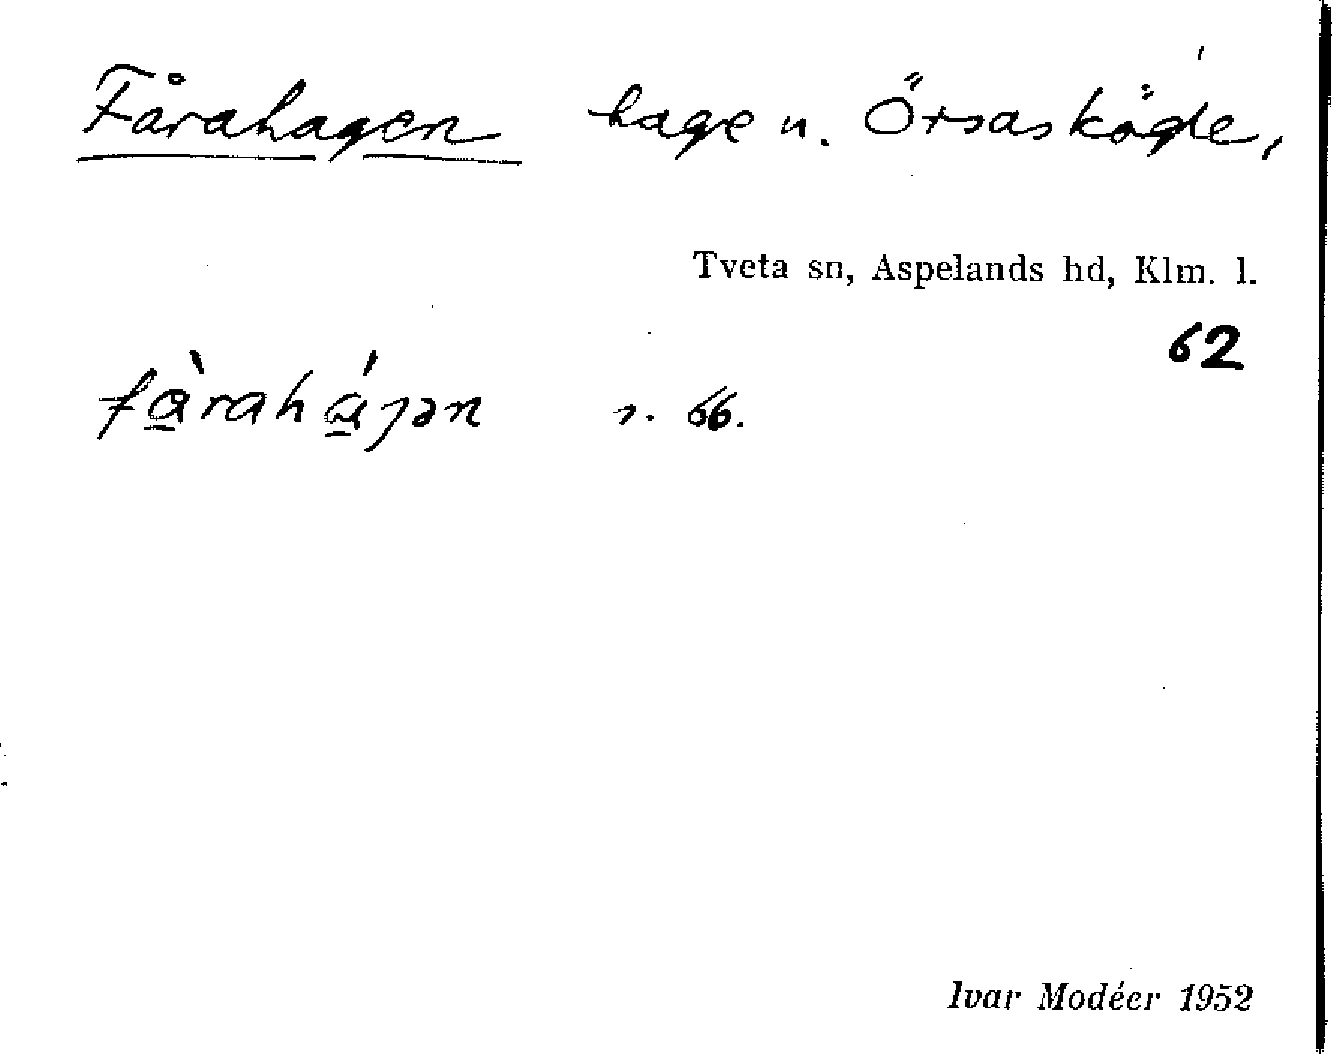 Fårahagen hage u. Örsaskögle,
Tveta sn, Aspelands hd, Klm. l.
62
fàraháɟən s. 66.
Ivar Modéer 1952